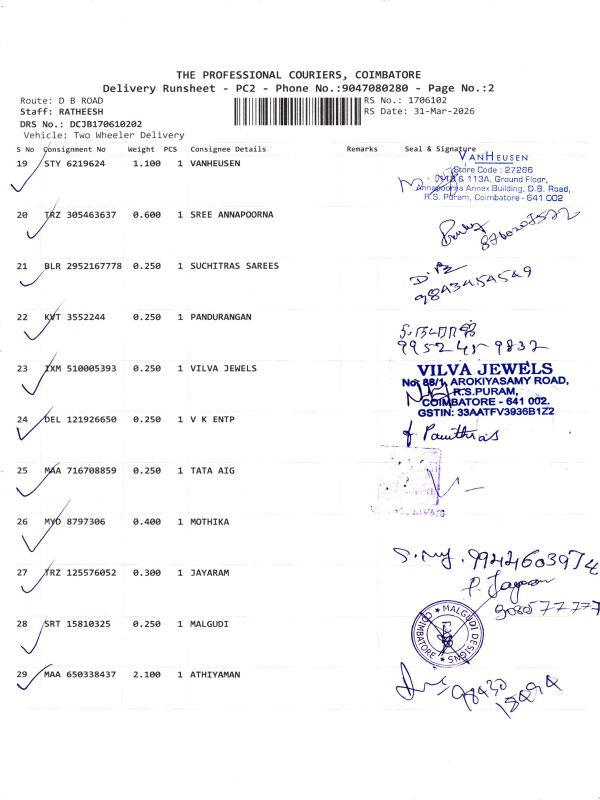 THE PROFESSIONAL COURIERS, COIMBATORE
Delivery Runsheet - PC2 - Phone No.:9047080280 - Page No.:2
Route: D B ROAD
RS No.: 1706102
Staff: RATHEESH
RS Date: 31-Mar-2026
DRS No.: DCJB170610202
Vehicle: Two Wheeler Delivery
S No Consignment No Weight PCS Consignee Details Remarks Seal & Signature
19 STY 6219624 1.100 1 VANHEUSEN
VANHEUSEN
Store Code : 27286
& 113A, Ground Floor,
Annapoorna Annex Building, D.B. Road,
R.S. Puram, Coimbatore - 641 002
20 TRZ 305463637 0.600 1 SREE ANNAPOORNA
21 BLR 2952167778 0.250 1 SUCHITRAS SAREES
9843454549
22 KVT 3552244 0.250 1 PANDURANGAN
99524 9832
23 IXM 510005393 0.250 1 VILVA JEWELS
VILVA JEWELS
No: 88/1, AROKIYASAMY ROAD,
R.S.PURAM,
COIMBATORE - 641 002.
GSTIN: 33AATFV3936B1Z2
24 DEL 121926650 0.250 1 V K ENTP
25 MAA 716708859 0.250 1 TATA AIG
26 MYD 8797306 0.400 1 MOTHIKA
9944603974
27 TRZ 125576052 0.300 1 JAYARAM
P. Jayaram
28 SRT 15810325 0.250 1 MALGUDI
MALGUDI DESIGNS
COIMBATORE
29 MAA 650338437 2.100 1 ATHIYAMAN
98430
18494